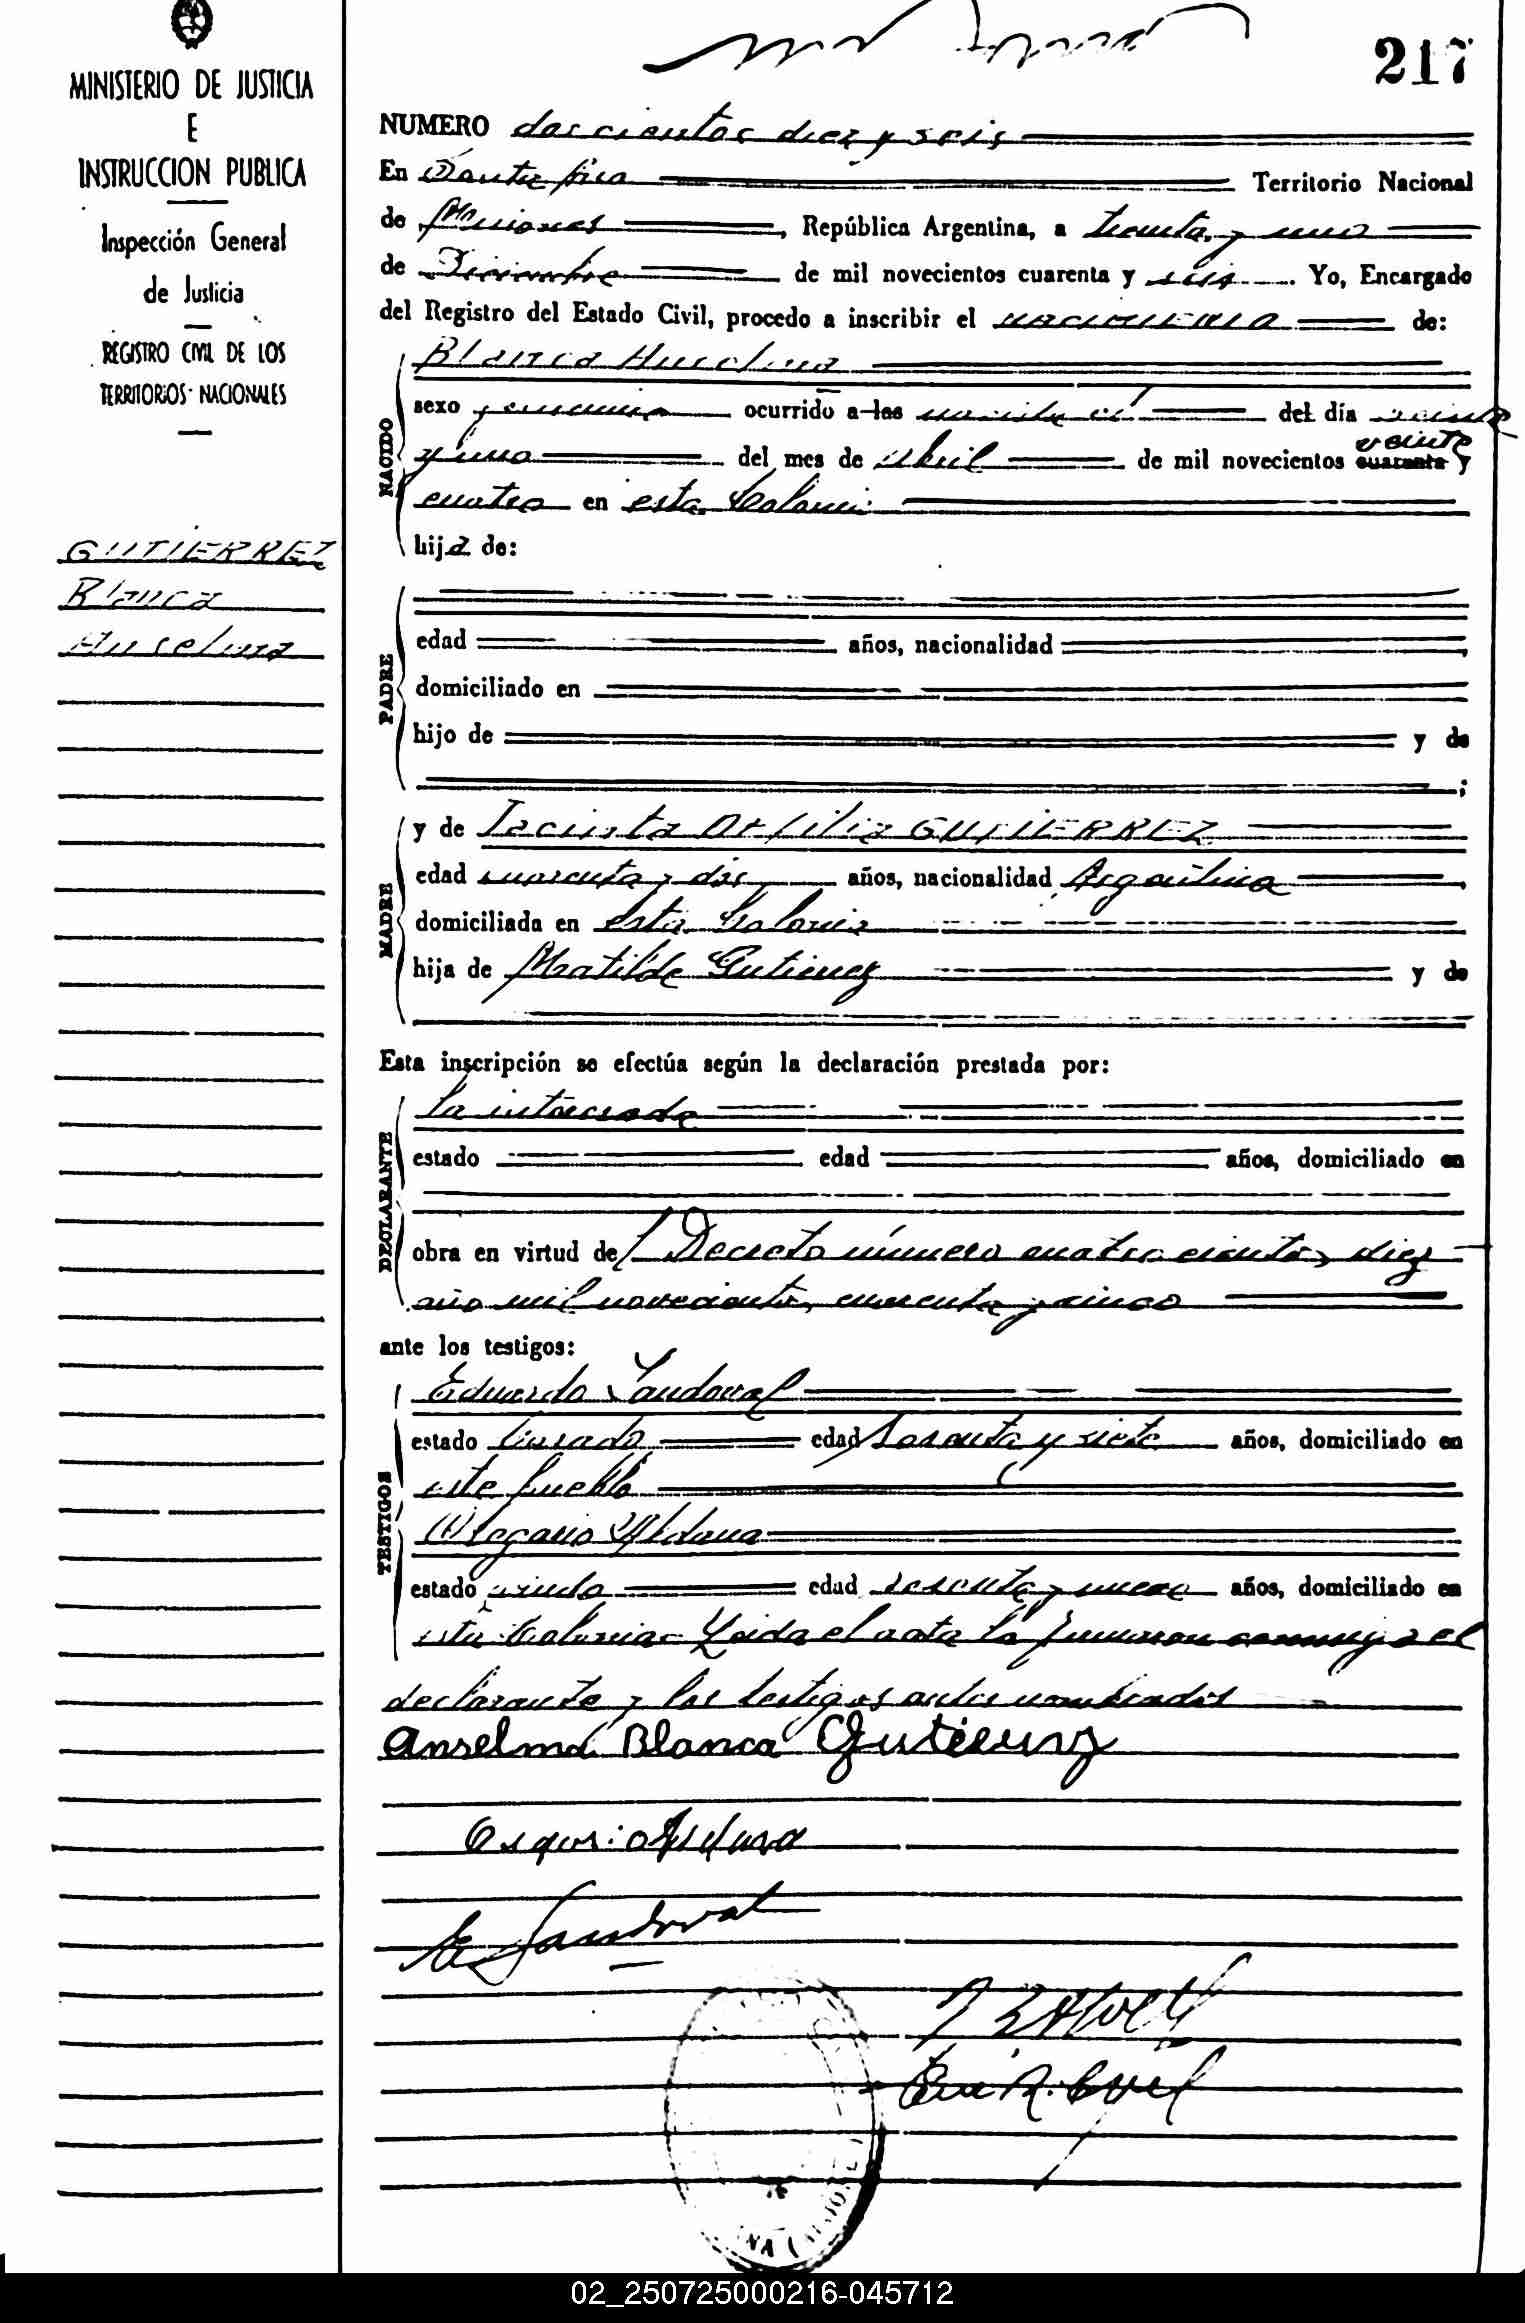 217
MINISTERIO DE JUSTICIA
E
INSTRUCCION PUBLICA
Inspección General
de Justicia
REGISTRO CIVIL DE LOS
TERRITORIOS NACIONALES
GUTIERREZ
Blanca
Anselma
NUMERO doscientos diez y seis
En Santa Territorio Nacional
de Misiones, República Argentina, a treinta y uno
de Diciembre de mil novecientos cuarenta y seis. Yo, Encargado
del Registro del Estado Civil, procedo a inscribir el nacimiento de:
NACIDO
Blanca Anselma
sexo femenino ocurrido a las del día veinte
y uno del mes de abril de mil novecientos veinte cuarenta y
cuatro en esta Colonia
hija de:
PADRE
edad años, nacionalidad
domiciliado en
hijo de y de
;
MADRE
y de Jacinta Ofilia GUTIERREZ
edad cuarenta y dos años, nacionalidad Argentina
domiciliada en esta Colonia
hija de Matilde Gutierrez y de
Esta inscripción se efectúa según la declaración prestada por:
DECLARANTE
la interesada
estado edad años, domiciliado en
obra en virtud del Decreto número cuatrocientos diez
año mil novecientos cuarenta y cinco
ante los testigos:
TESTIGOS
Eduardo Sandoval
estado Casado edad Sesenta y siete años, domiciliado en
este pueblo
Olegario Aldana
estado viudo edad sesenta y nueve años, domiciliado en
esta Colonia Leida el acta la firmaron conmigo el
declarante y los testigos antes nombrados
Anselma Blanca Gutierrez
E Sandoval
02_250725000216-045712